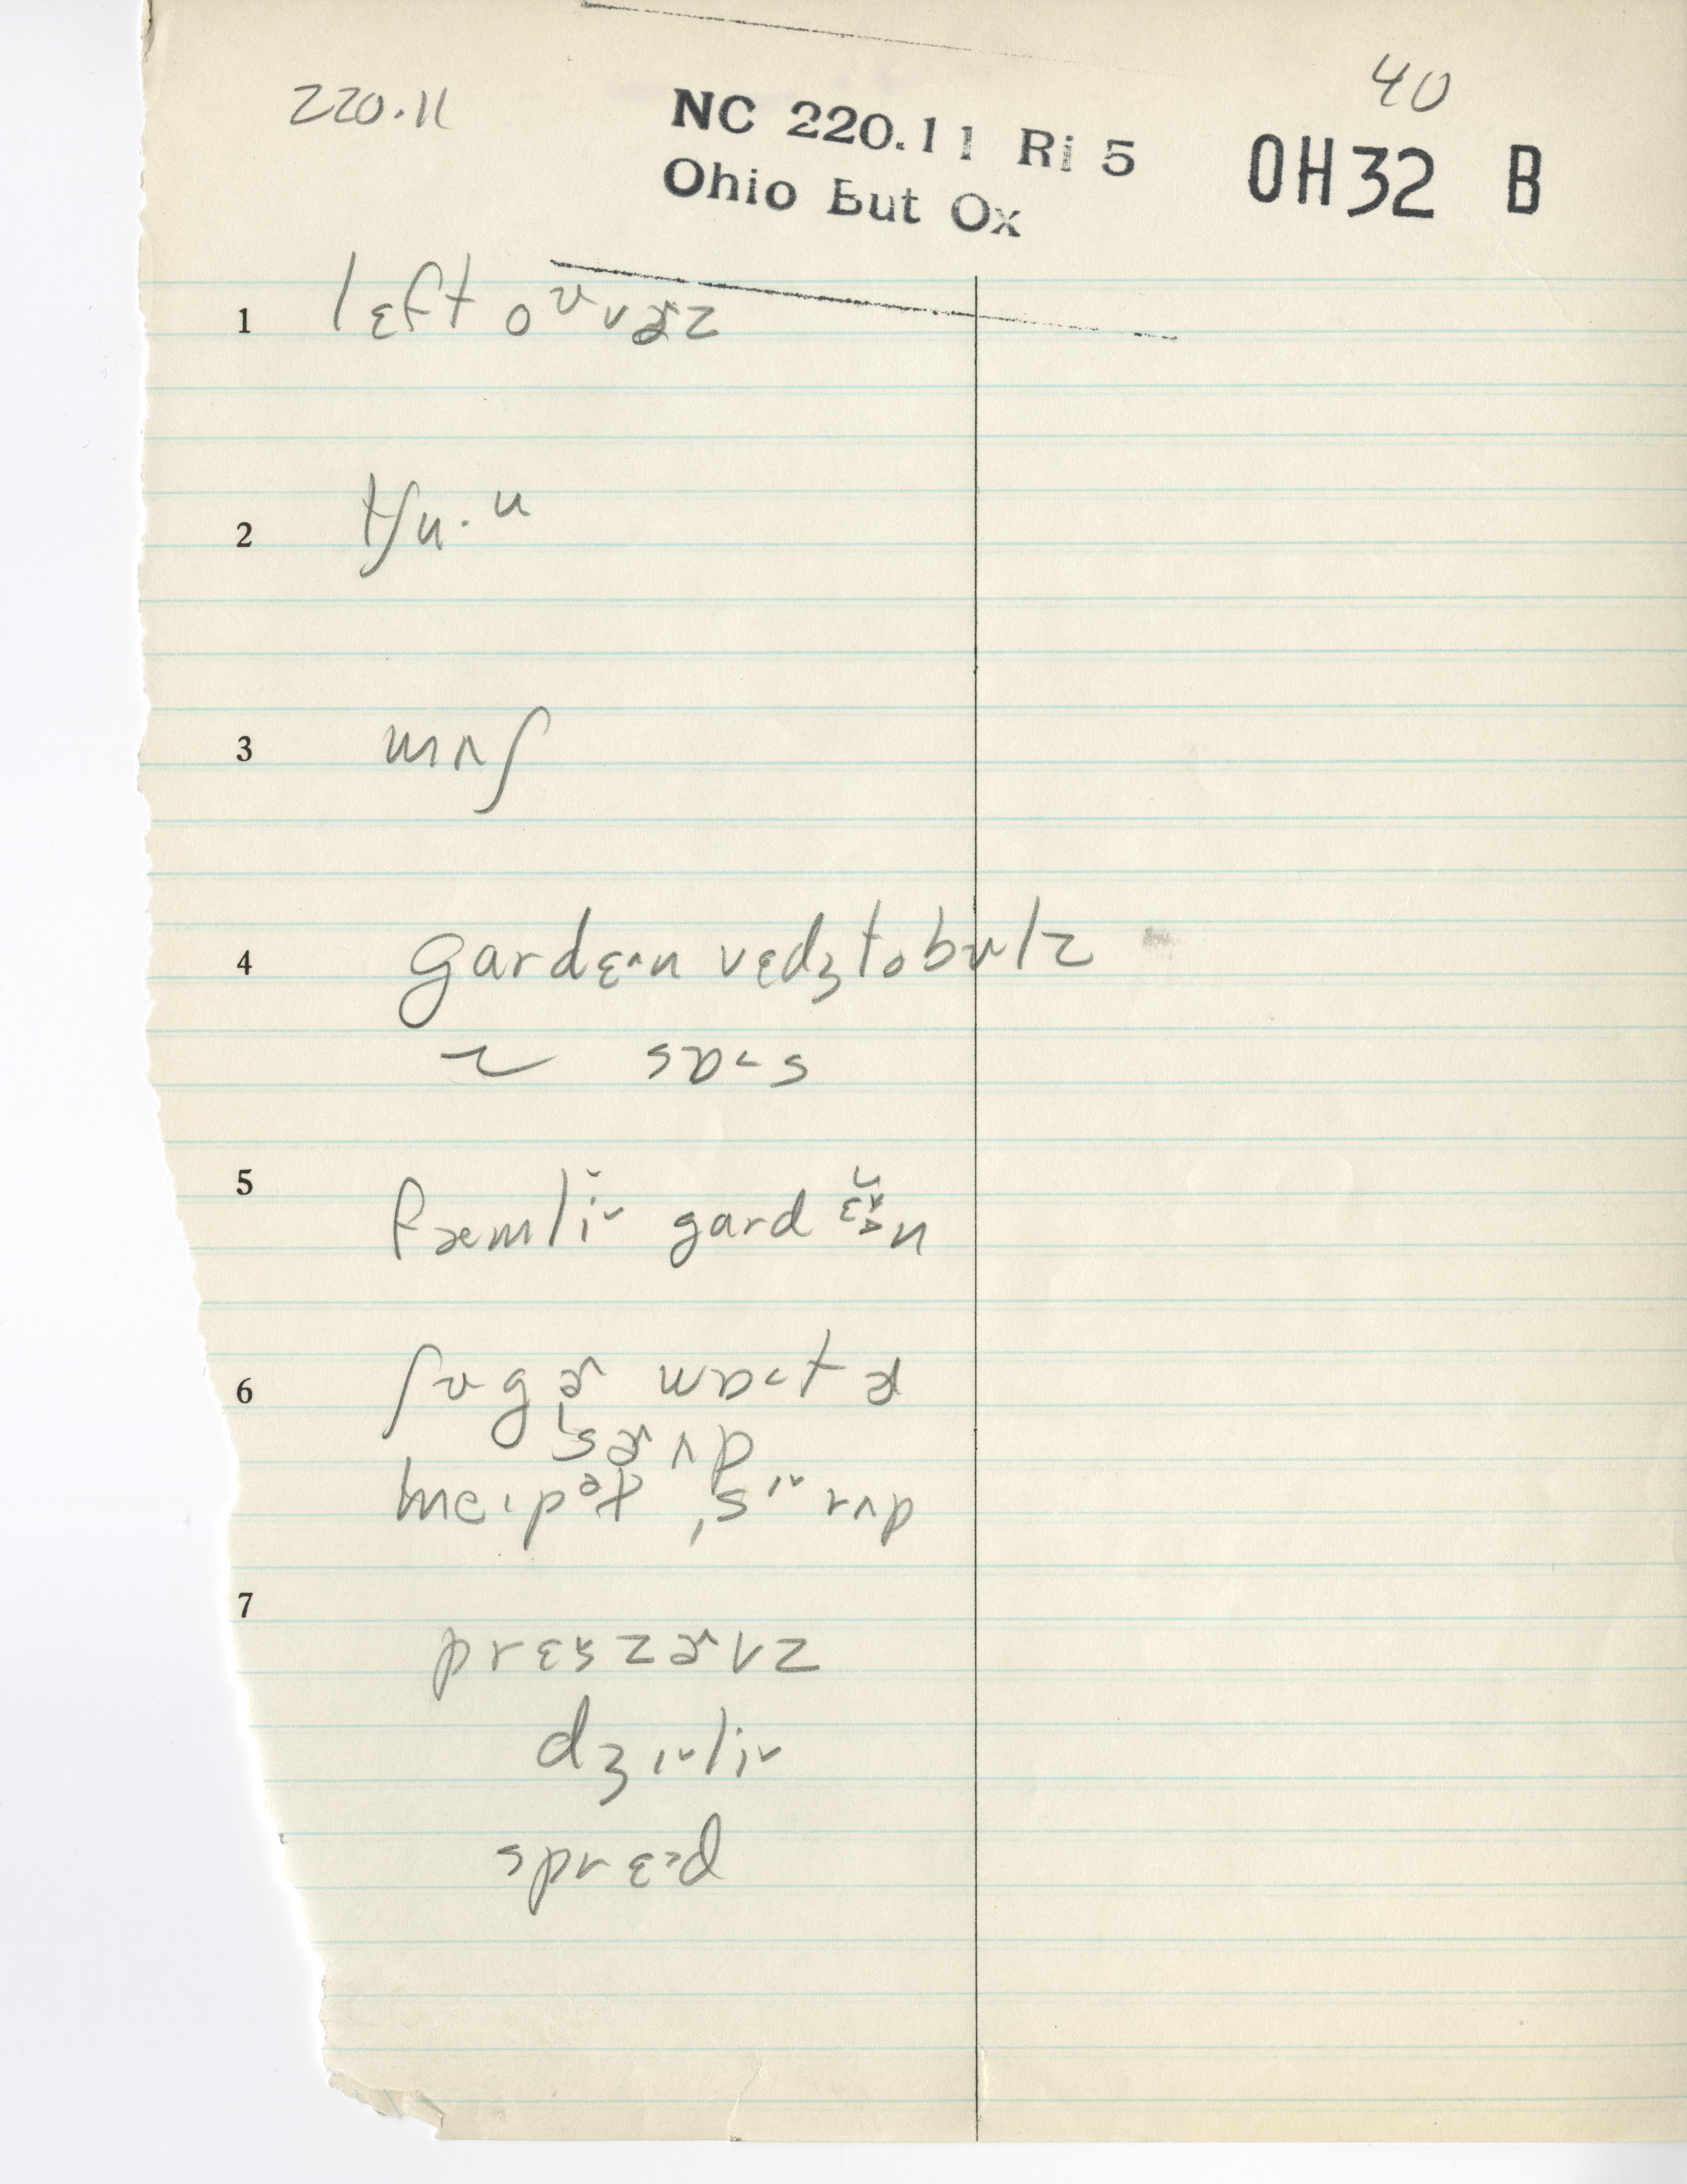 220.11
40
NC 220.11 Ri 5
Ohio But Ox
OH32 B
1 lɛft oᶷvɚz
2 tʃu·ᵘ
3 mʌʃ
4 gardɛ˞n vɛdʒtəbɤlz
~ sɒ˂s
5 fæmliˇ gard n
6 ʃɤgɚ wɒ˂tɚ
sɚʌp
7 prɛszɚvz
dʒɪˇliˇ
sprɛ˃d